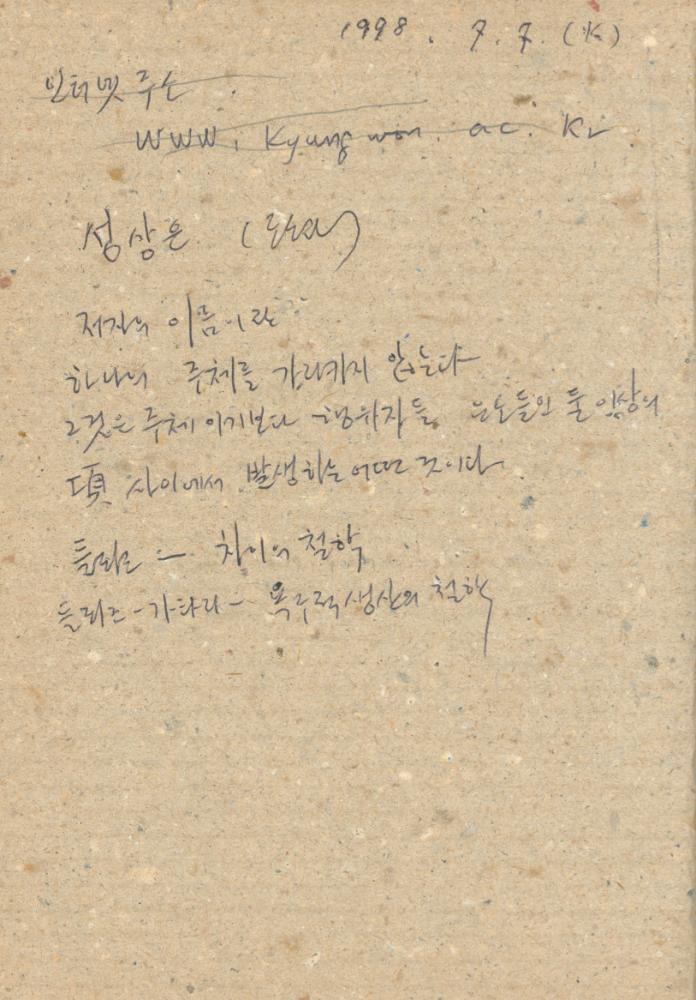 1998. 7. 7. (火)
인터넷 주소
www. kyungwon. ac. kr
성상은
저자의 이름이란
하나의 주체를 가리키지 않는다
그것은 주체이기보다 행위자들 둘 이상의
項 사이에서 발생하는 어떤 것이다.
들뢰즈 - 차이의 철학
들뢰즈-가타리- 욕구적 생산의 철학